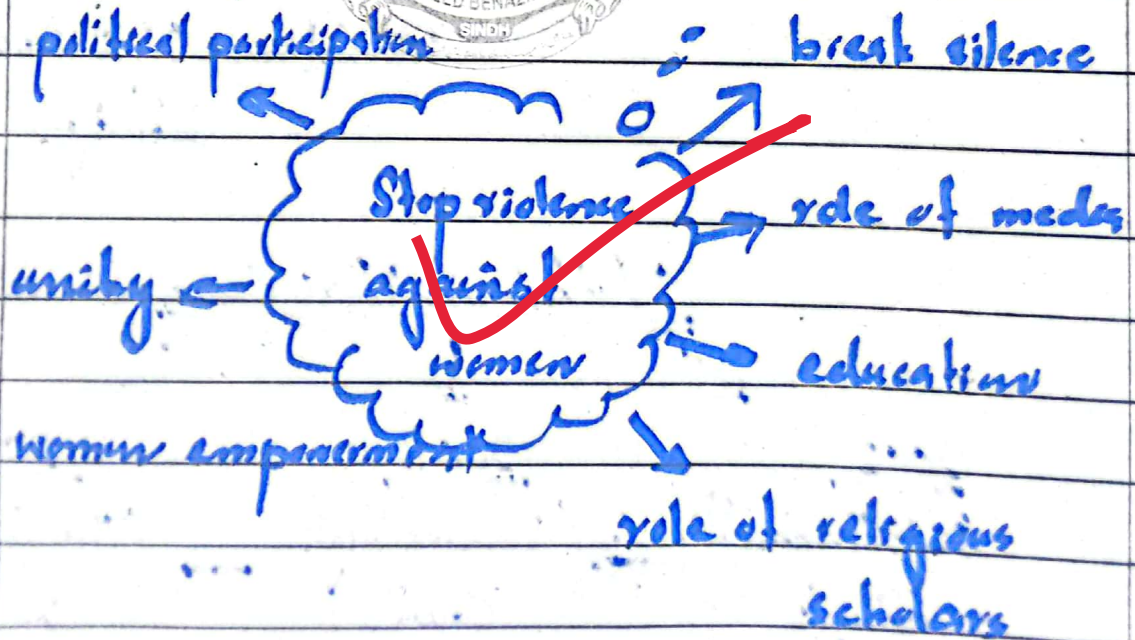 SINDH
political participation
break silence
Stop violence
role of media
against
unity
women
education
women empowerment
role of religious
scholars